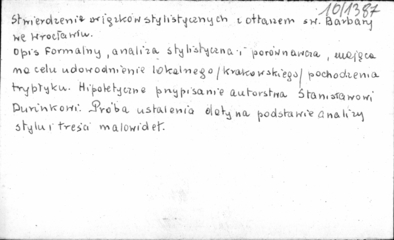 10/1387
Stwierdzenie związków stylistycznych z ołtarzem św. Barbary
we Wrocławiu.
Opis formalny, analiza stylistyczna i porównawcza, mająca
na celu udowodnienie lokalnego /krakowskiego/ pochodzenia
tryptyku. Hipotetyczne przypisanie autorstwa Stanisławowi
Durinkowi. Próba ustalenia daty na podstawie analizy
stylu i treści malowideł.